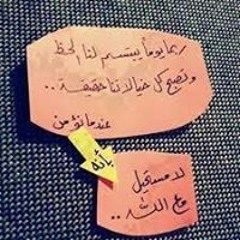 ربما يوماً يبتسم لنا الحظ
وتصبح كل خيالاتنا حقيقة ..
عندما نؤمن
بأنه
لا مستحيل
مع الله ..